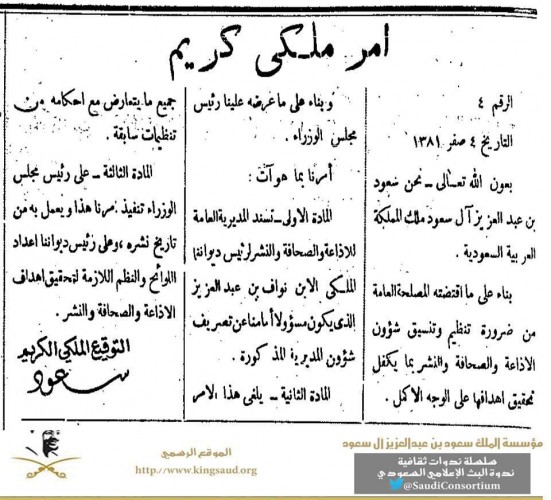 امر ملكي كريم
الرقم ٤
التاريخ ٤ صفر ١٣٨١
بعون الله تعالى ــ نحن سعود
بن عبد العزيز آل سعود ملك المملكة
العربية السعودية .
بناء على ما اقتضته المصلحة العامة
من ضرورة تنظيم وتنسيق شؤون
الاذاعة والصحافة والنشر بما يكفل
تحقيق اهدافها على الوجه الاكمل .
وبناء على ما عرضه علينا رئيس
مجلس الوزراء .
أمرنا بما هو آت :
المادة الاولى ــ تسند المديرية العامة
للاذاعة والصحافة والنشر لرئيس ديواننا
الملكي الابن نواف بن عبد العزيز
الذي يكون مسؤولا أمامنا عن تصريف
شؤون المديرية المذكورة .
المادة الثانية ــ يلغى هذا الامر
جميع ما يتعارض مع احكامه من
تنظيمات سابقة .
المادة الثالثة ــ على رئيس مجلس
الوزراء تنفيذ امرنا هذا ويعمل به من
تاريخ نشره ، وعلى رئيس ديواننا اعداد
اللوائح والنظم اللازمة لتحقيق اهداف
الاذاعة والصحافة والنشر .
التوقيع الملكي الكريم
سعود
مؤسسة الملك سعود بن عبدالعزيز آل سعود
سلسلة ندوات ثقافية
ندوة البث الإعلامي السعودي
@SaudiConsortium
الموقع الرسمي
http://www.kingsaud.org